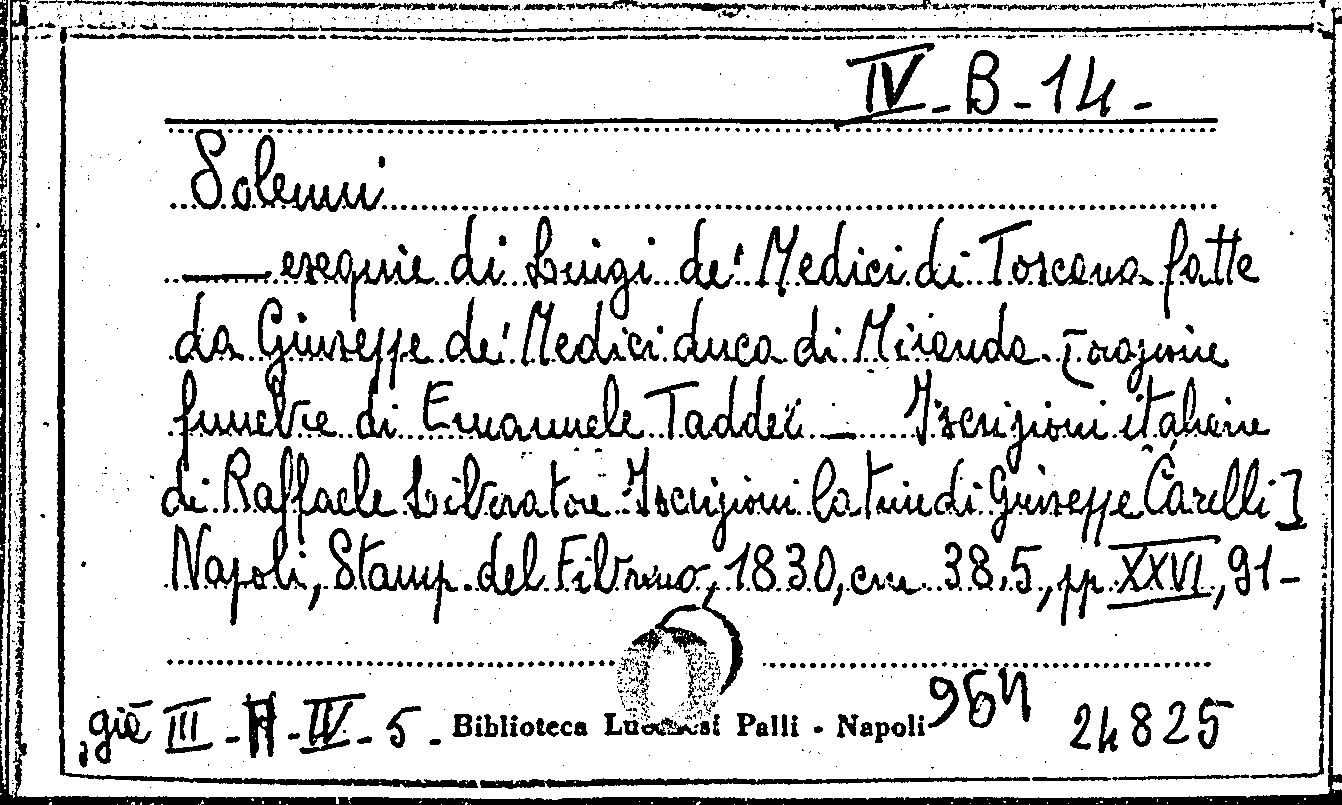 IV - B - 14 -
Solenni
—— esequie di Luigi de' Medici di Toscana fatte
da Giuseppe de' Medici duca di Miranda. [orazione
funebre di Emanuele Taddei — Iscrizioni italiane
di Raffaele Liberatore. Iscrizioni latine di Giuseppe Carelli]
Napoli, Stamp. del Fibreno, 1830, cm. 38.5, pp. XXVI, 91 -
già III - - IV - 5 - Biblioteca Lucchesi Palli - Napoli
24825